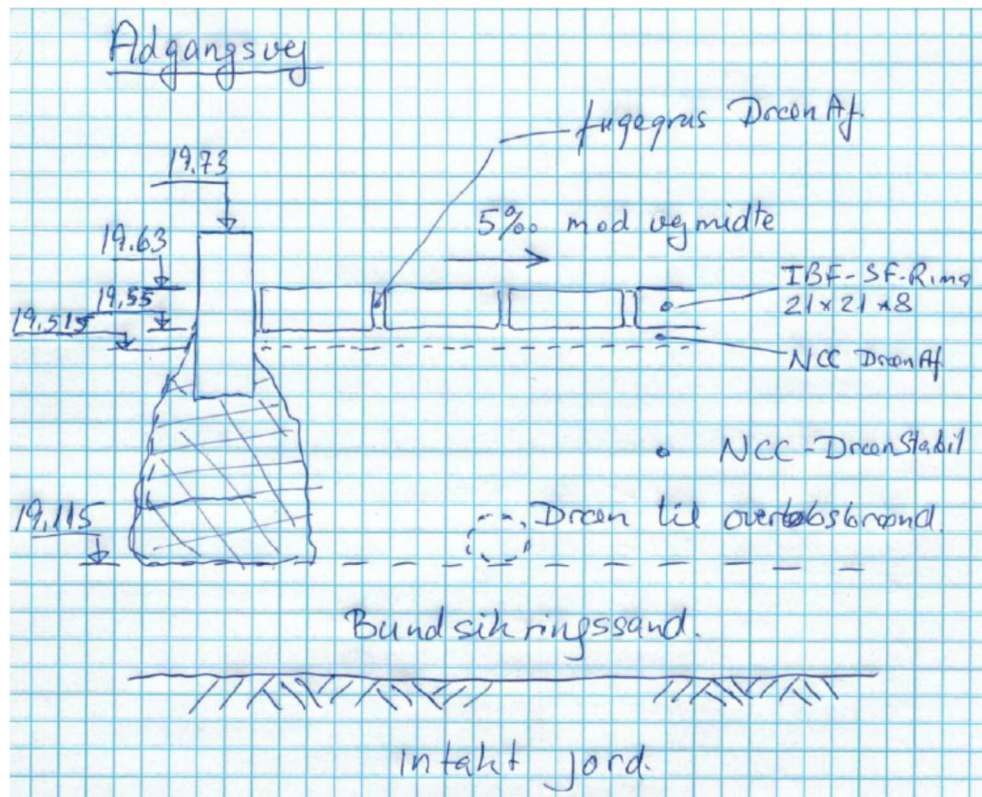 Adgangsvej
fugegrus DrænAf.
19.73
5‰ mod vejmidte
19.63
IBF-SF-Rima
21x21x8
19.55
19.515
NCC DrænAf.
NCC-DrænStabil
19.115
Dræn til overløbsbrønd.
Bundsikringssand.
intakt jord.